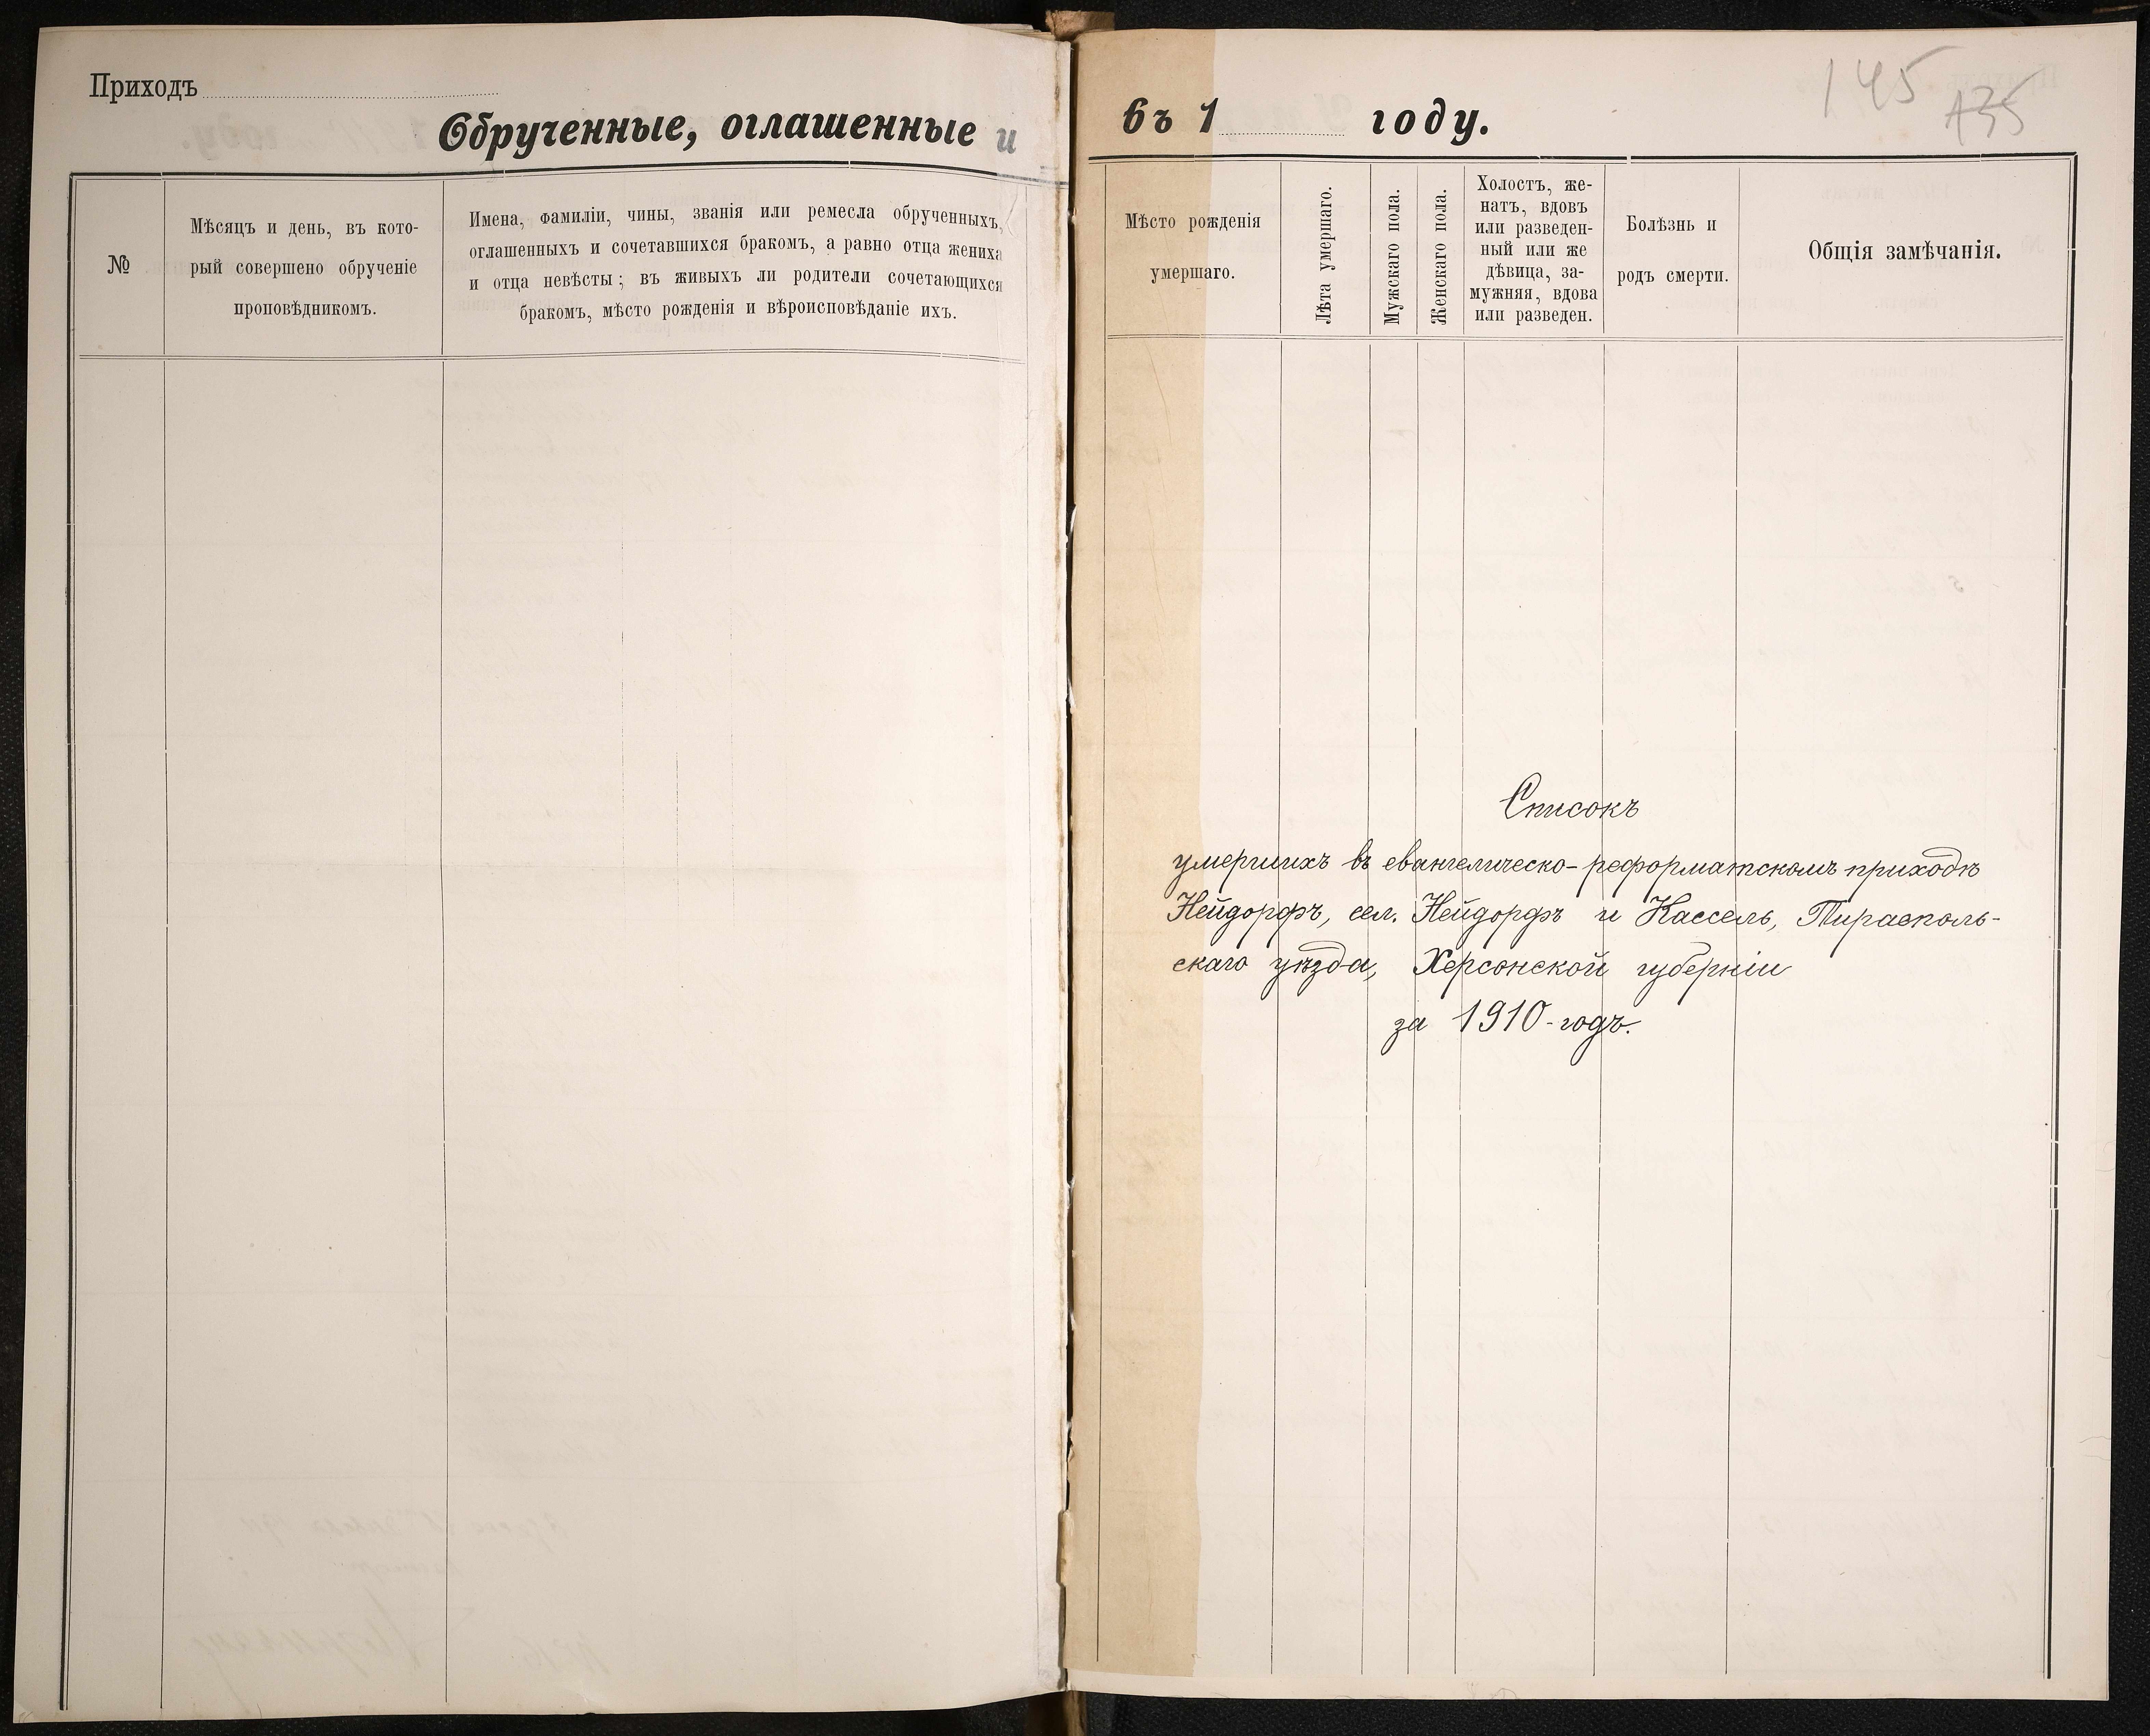 Приходъ
Обрученные, оглашенные и
№
Мѣсяцъ и день, въ кото-
рый совершено обрученіе
проповѣдникомъ.
Имена, фамиліи, чины, званія или ремесла обрученныхъ,
оглашенныхъ и сочетавшихся бракомъ, а равно отца жениха
и отца невѣсты; въ живыхъ ли родители сочетающихся
бракомъ, мѣсто рожденія и вѣроисповѣданіе ихъ.
145
135
въ 1 году.
Мѣсто рожденія
умершаго.
Лѣта умершаго.
Мужскаго пола.
Женскаго пола.
Холостъ, же-
натъ, вдовъ
или разведен-
ный или же
дѣвица, за-
мужняя, вдова
или разведен.
Болѣзнь и
родъ смерти.
Общія замѣчанія.
Списокъ
умершихъ въ евангелическо-реформатскомъ приходѣ
Нейдорфъ, сел. Нейдорфъ и Кассель, Тирасполь-
скаго уѣзда, Херсонской губерніи
за 1910-годъ.